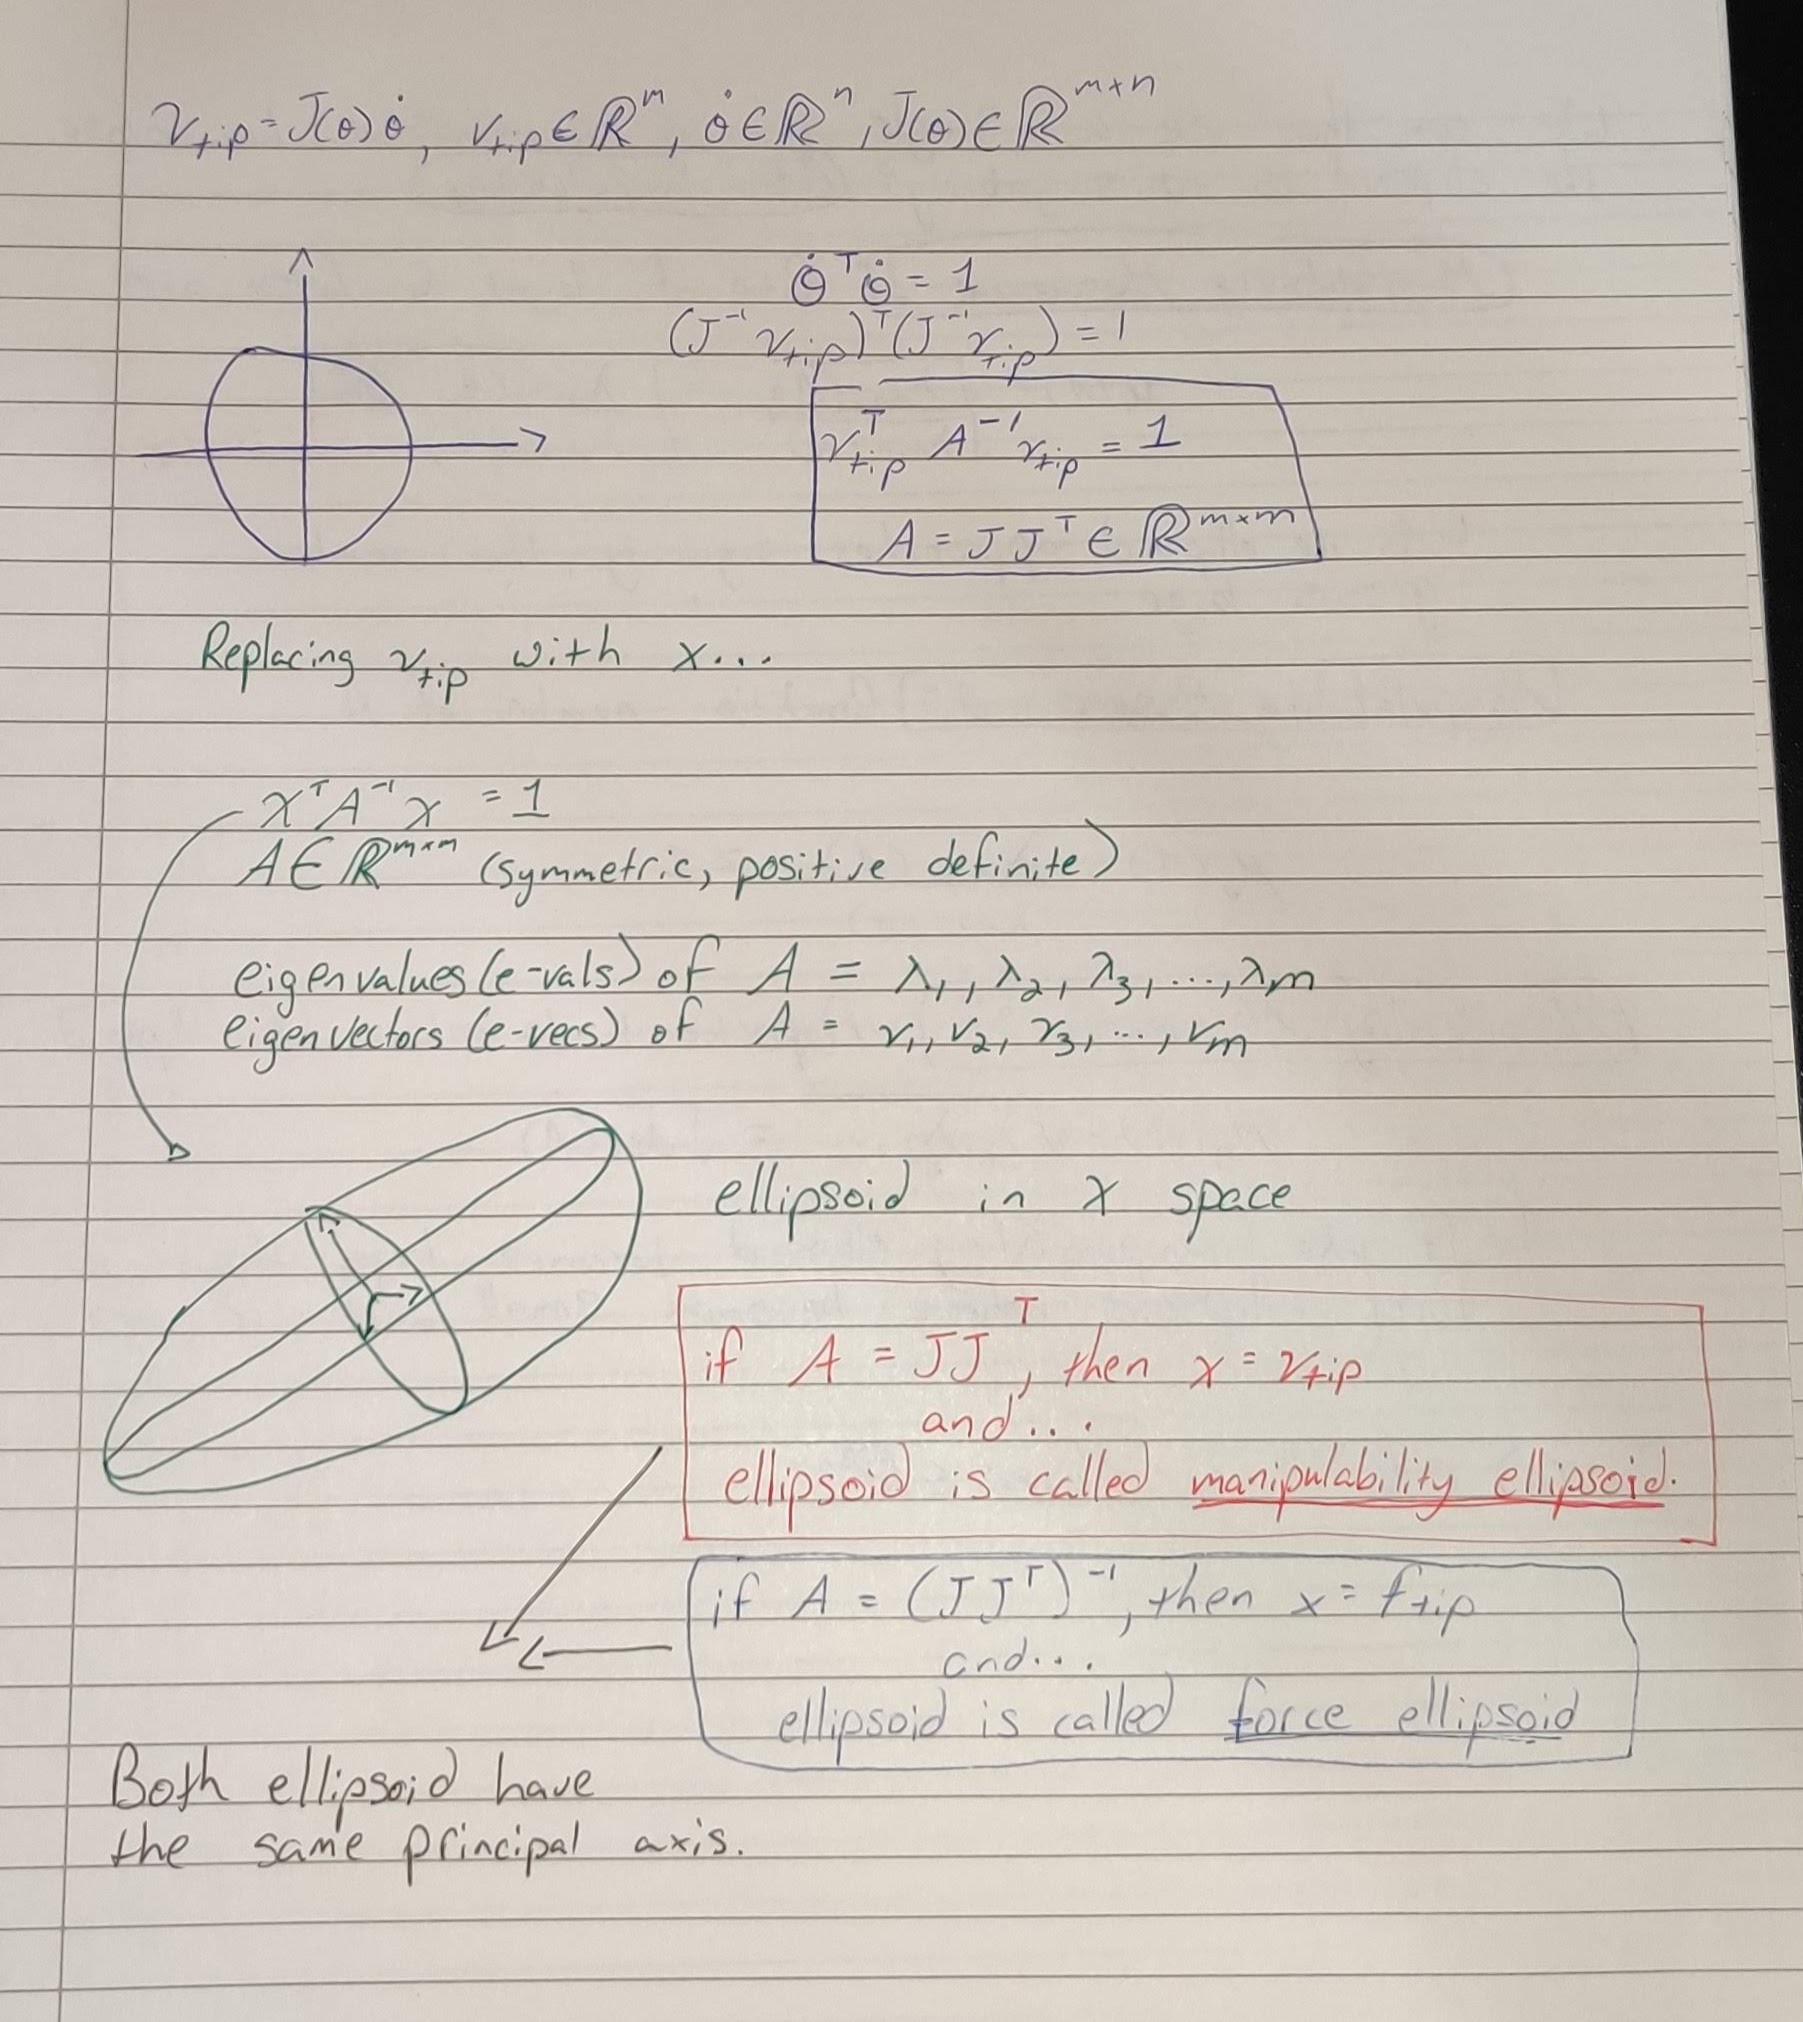 v_tip = J(θ)θ̇, v_tip ∈ ℝ^m, θ̇ ∈ ℝ^n, J(θ) ∈ ℝ^(m×n)
θ̇^T θ̇ = 1
(J^-1 v_tip)^T (J^-1 v_tip) = 1
v_tip^T A^-1 v_tip = 1
A = J J^T ∈ ℝ^(m×m)
Replacing v_tip with x...
x^T A^-1 x = 1
A ∈ ℝ^(m×m) (symmetric, positive definite)
eigenvalues (e-vals) of A = λ_1, λ_2, λ_3, ..., λ_m
eigenvectors (e-vecs) of A = v_1, v_2, v_3, ..., v_m
ellipsoid in x space
if A = JJ^T, then x = v_tip
and...
ellipsoid is called manipulability ellipsoid.
if A = (JJ^T)^-1, then x = f_tip
and...
ellipsoid is called force ellipsoid
Both ellipsoid have
the same principal axis.